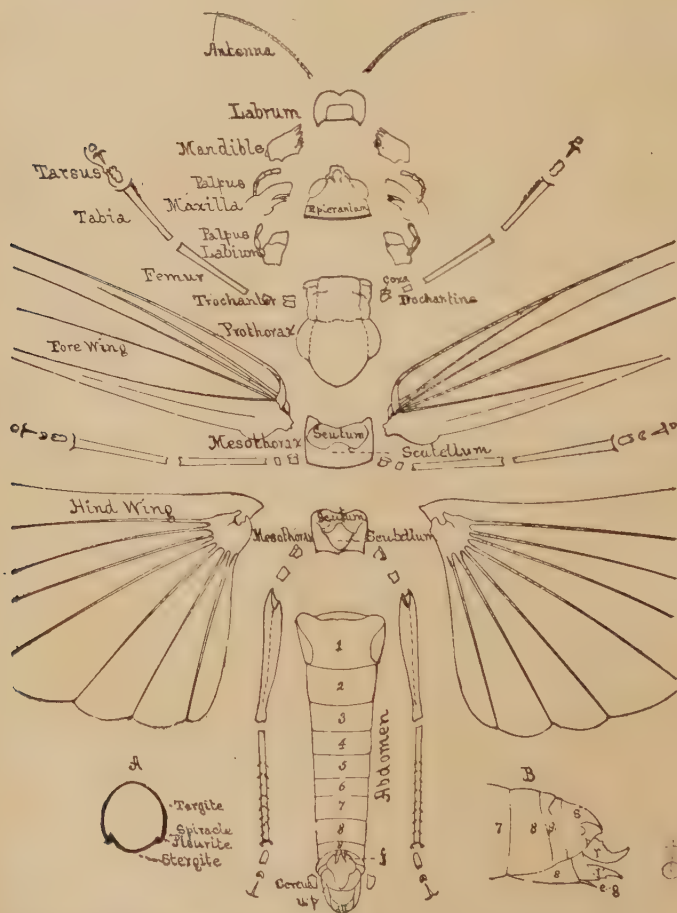 Antenna
Labrum
Mandible
Tarsus
Palpus
Maxilla
Epicranium
Tabia
Palpus
Labium
Femur
Coxa
Trochanter
Trochantine
Prothorax
Fore Wing
Mesothorax
Scutum
Scutellum
Hind Wing
Scutum
Mesothorax
Scutellum
1
2
3
4
5
6
7
8
Abdomen
A
Tergite
Spiracle
Pleurite
Stergite
f
Cercus
u.p
B
7
8
9
s
r
r
8
e
g